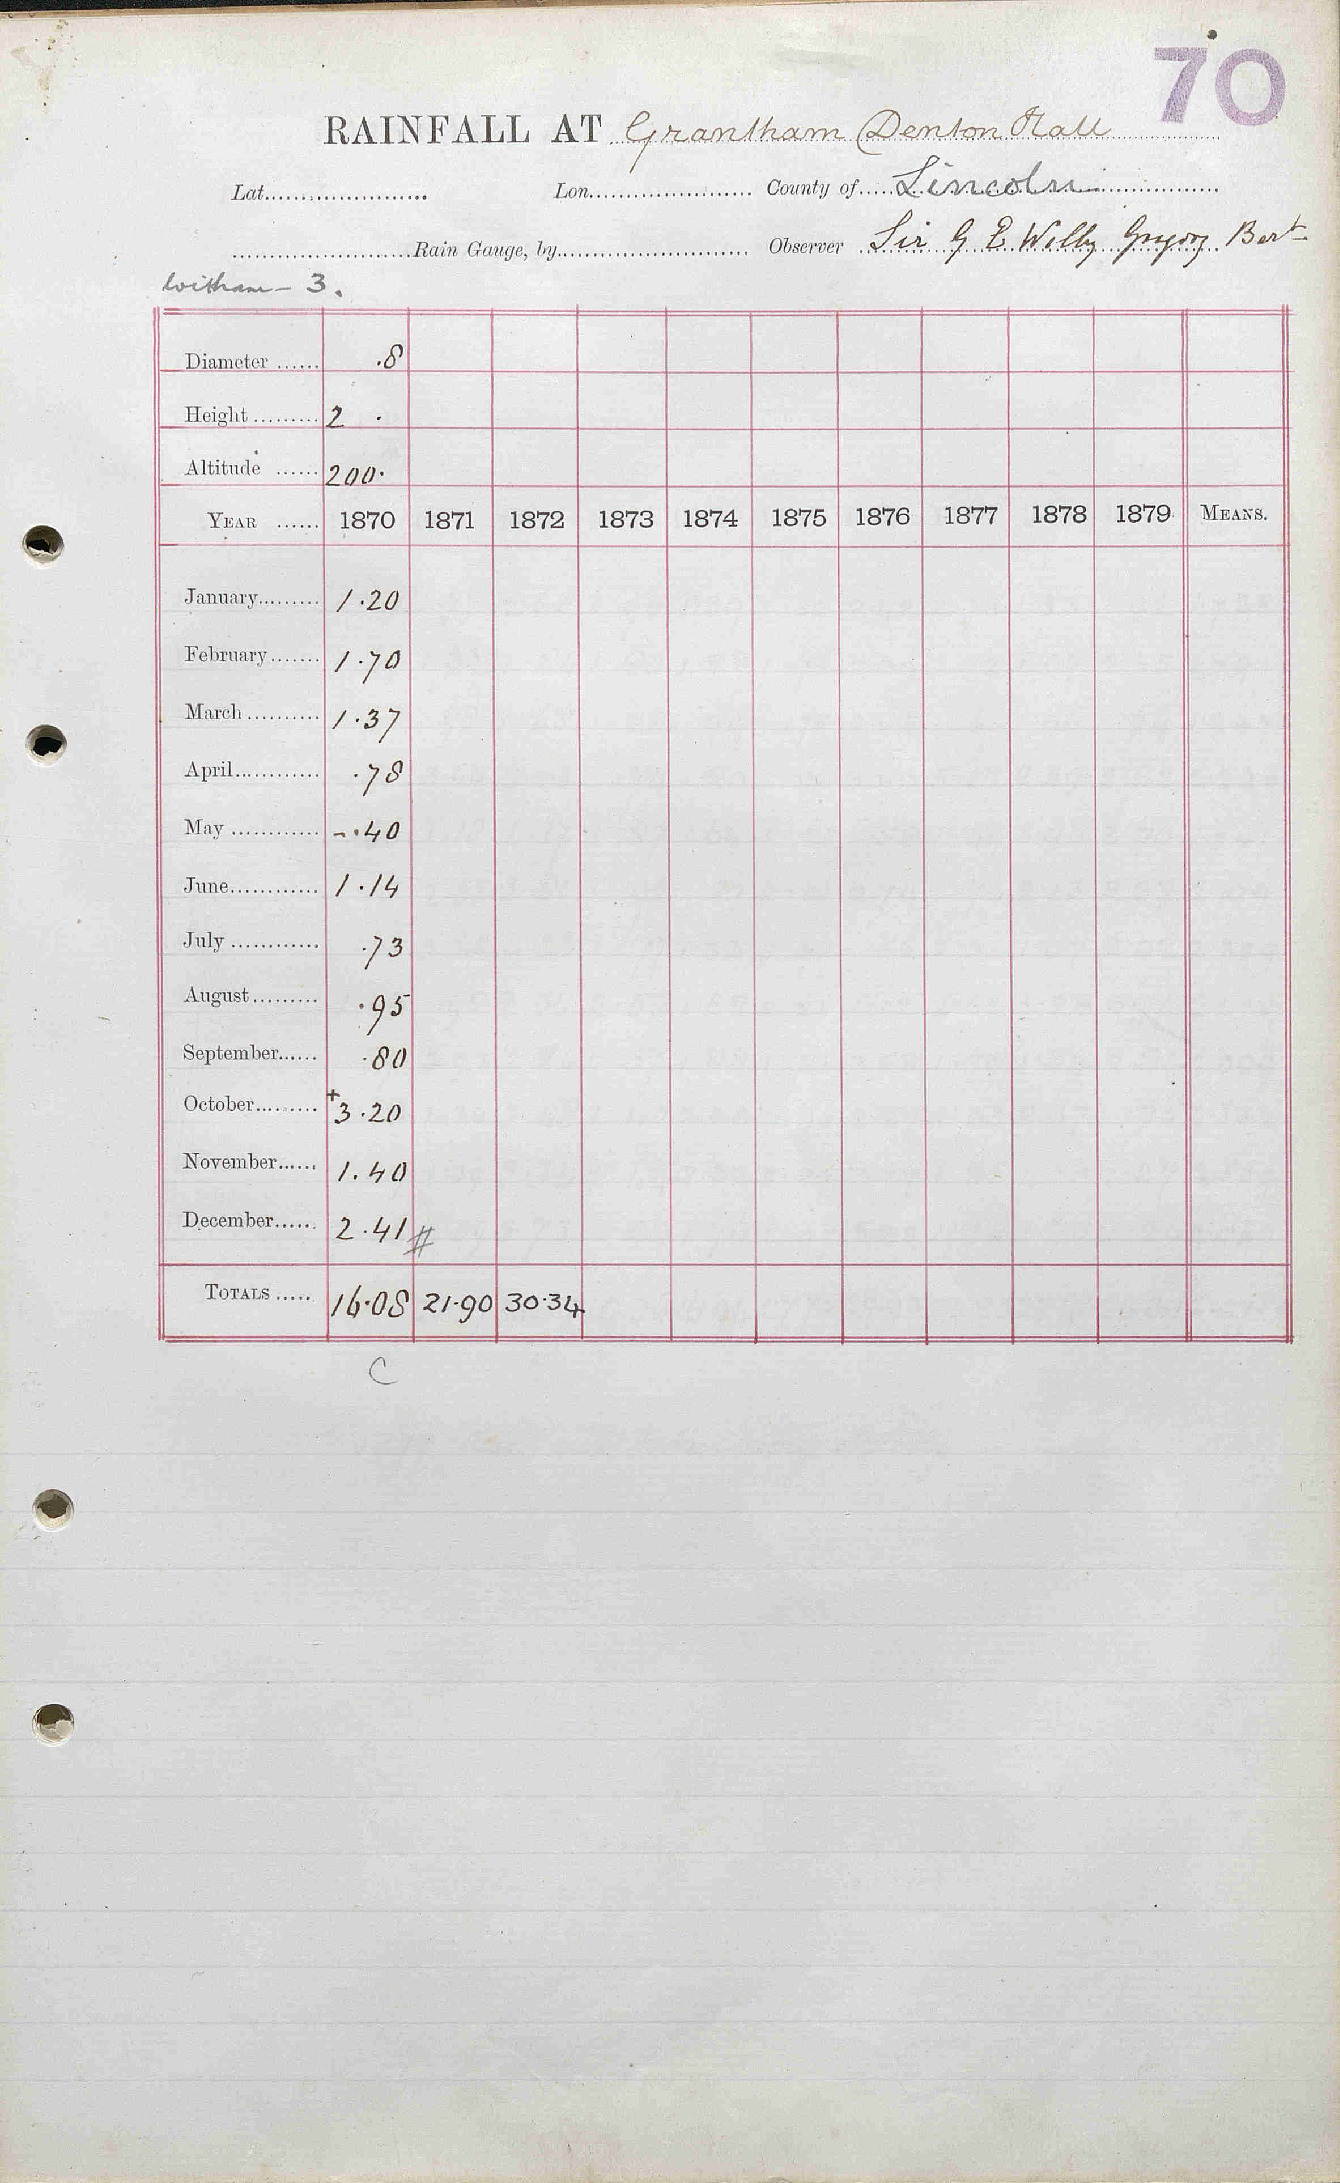 70
RAINFALL AT Grantham (Denton Hall
Lat. Lon. County of Lincoln
Rain Gauge, by Observer Sir G E Welby Gregory Bart
Witham - 3.
Diameter .8
Height 2 .
Altitude 200.
YEAR 1870 1871 1872 1873 1874 1875 1876 1877 1878 1879 MEANS.
January 1.20
February 1.70
March 1.37
April .78
May -.40
June 1.14
July .73
August .95
September .80
October +3.20
November 1.40
December 2.41 #
TOTALS 16.08 21.90 30.34
C